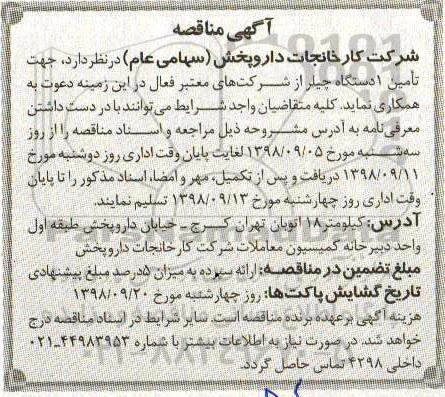 آگهی مناقصه
شرکت کارخانجات داروپخش (سهامی عام) در نظر دارد، جهت
تأمین ۱دستگاه چیلر از شرکت‌های معتبر فعال در این زمینه دعوت به
همکاری نماید. کلیه متقاضیان واجد شرایط می‌توانند با در دست داشتن
معرفی‌نامه به آدرس مشروحه ذیل مراجعه و اسناد مناقصه را از روز
سه‌شنبه مورخ ۱۳۹۸/۰۹/۰۵ لغایت پایان وقت اداری روز دوشنبه مورخ
۱۳۹۸/۰۹/۱۱ دریافت و پس از تکمیل، مهر و امضا، اسناد مذکور را تا پایان
وقت اداری روز چهارشنبه مورخ ۱۳۹۸/۰۹/۱۳ تسلیم نمایند.
آدرس: کیلومتر۱۸ اتوبان تهران کرج - خیابان داروپخش طبقه اول
واحد دبیرخانه کمیسیون معاملات شرکت کارخانجات داروپخش
مبلغ تضمین در مناقصه: ارائه سپرده به میزان ۵درصد مبلغ پیشنهادی
تاریخ گشایش پاکت‌ها: روز چهارشنبه مورخ ۱۳۹۸/۰۹/۲۰
هزینه آگهی بر عهده برنده مناقصه است. سایر شرایط در اسناد مناقصه درج
خواهد شد. در صورت نیاز به اطلاعات بیشتر با شماره ۴۴۹۸۳۹۵۳-۰۲۱
داخلی ۴۲۹۸ تماس حاصل گردد.